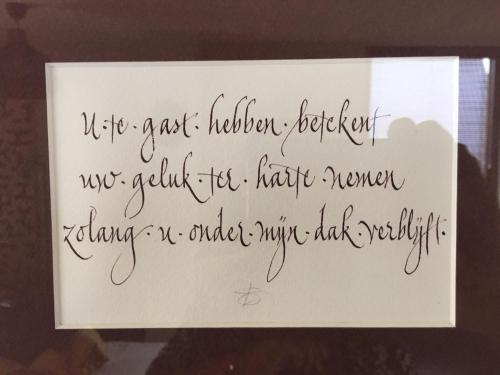 U·te·gast·hebben·betekent
uw·geluk·ter·harte·nemen
zolang·u·onder·mijn·dak·verblijft.